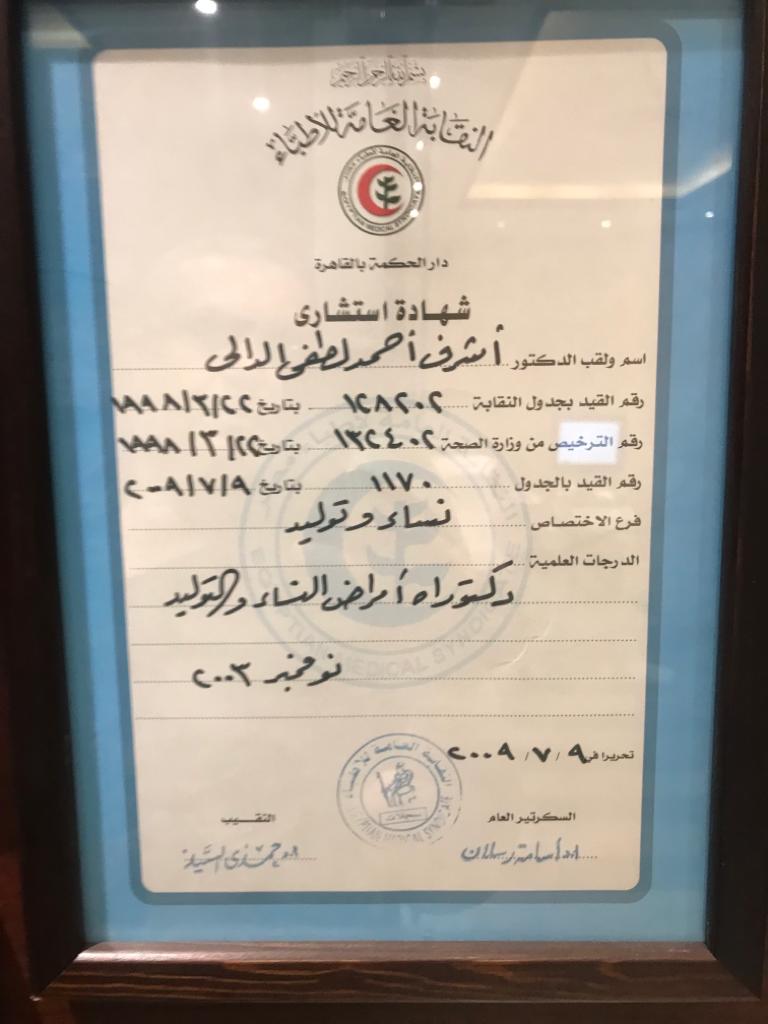 بسم الله الرحمن الرحيم
النقابة العامة للأطباء
EGYPTIAN MEDICAL SYNDICATE
دار الحكمة بالقاهرة
شهادة استشارى
اسم ولقب الدكتور أشرف أحمد لطفى الدالى
رقم القيد بجدول النقابة ١٢٨٢٠٢ بتاريخ ١٩٩٨/٣/٢٢
رقم الترخيص من وزارة الصحة ١٣٢٤٠٢ بتاريخ ١٩٩٨/٣/٢٢
رقم القيد بالجدول ١١٧٠ بتاريخ ٢٠٠٩/٧/٩
فرع الاختصاص نساء وتوليد
الدرجات العلمية
دكتوراه أمراض النساء والتوليد
نوفمبر ٢٠٠٣
تحريرا فى ٩ / ٧ / ٢٠٠٩
السكرتير العام النقيب
أسامة رسلان حمدى السيد